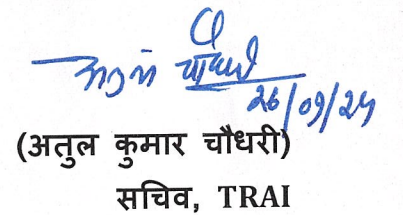 अतुल चौधरी
26/09/24
(अतुल कुमार चौधरी)
सचिव, TRAI